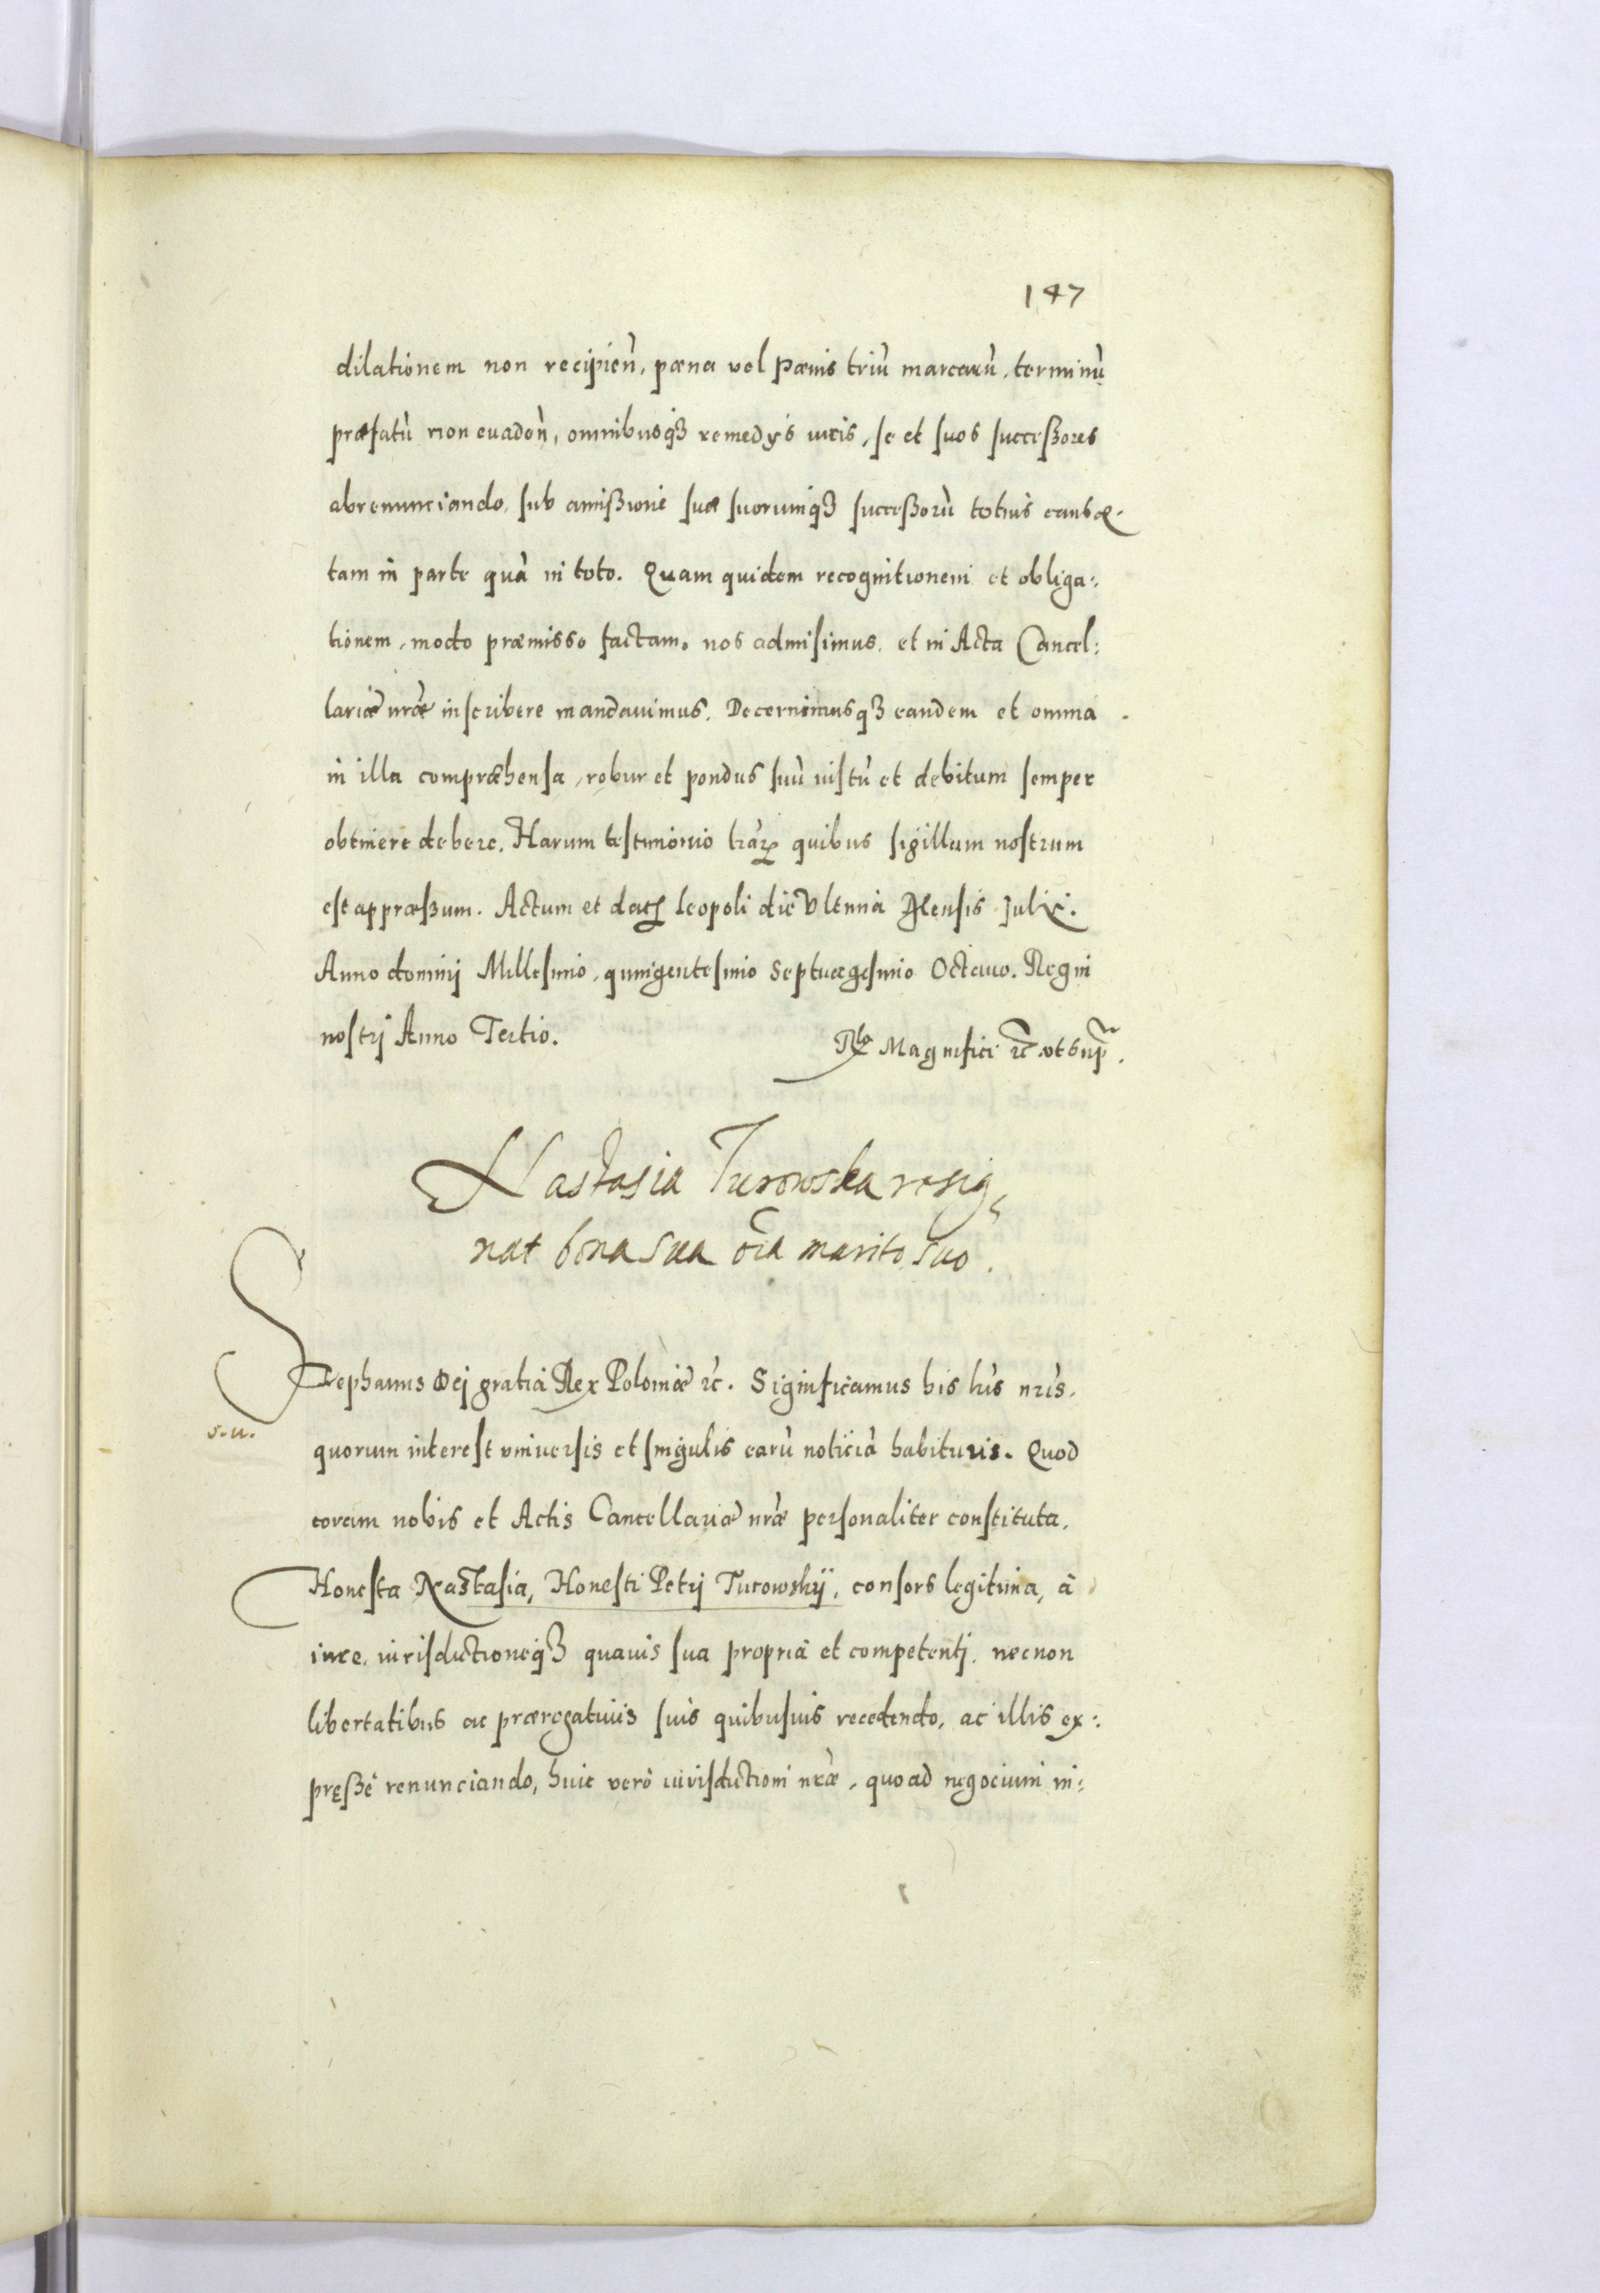 147
dilationem non recipien̄, pœna vel pœnis triū marcarū, terminū
præfatū non evaden̄, omnibusqȝ remedijs iuris, se et suos successores
abrenunciando, sub amissione suæ suorumqȝ successorū totius causæ.
tam in parte quā in toto. Quam quidem recognitionem et obliga:
tionem, modo præmisso factam, nos admisimus, et in Acta Cancel:
lariæ nr̄æ inscribere mandavimus. Decernimusqȝ eandem et omnia
in illa compræhensa, robur et pondus suū iustū et debitum semper
obtinere debere. Harum testimonio lr̄arꝝ quibus sigillum nostrum
est appræssum. Actum et datꝭ Leopoli die Vltima Mensis Julij.
Anno dominj Millesimo, quingentesimo Septuagesimo Octauo. Regni
nostrj Anno Tertio.
Rlo Magnifici ꝛc̄ vt supr̄.
Nastasia Turowska resig,
nat bona sua oīa marito suo.
Stephanus Dej gratia Rex Poloniæ ꝛc. Significamus his lr̄is nr̄is,
s. u.
quorum interest vniuersis et singulis earū noticiā habituris. Quod
coram nobis et Actis Cancellariæ nr̄æ personaliter constituta,
Honesta Nastasia, Honesti Petrj Turowskÿ, consors legitima, à
iure, iurisdictioneqȝ quauis sua propria et competentj, necnon
libertatibus ac prærogatiuis suis quibusuis recedendo, ac illis ex:
pręssè renunciando, huic verò iurisdictioni nr̄æ, quoad negocium in: